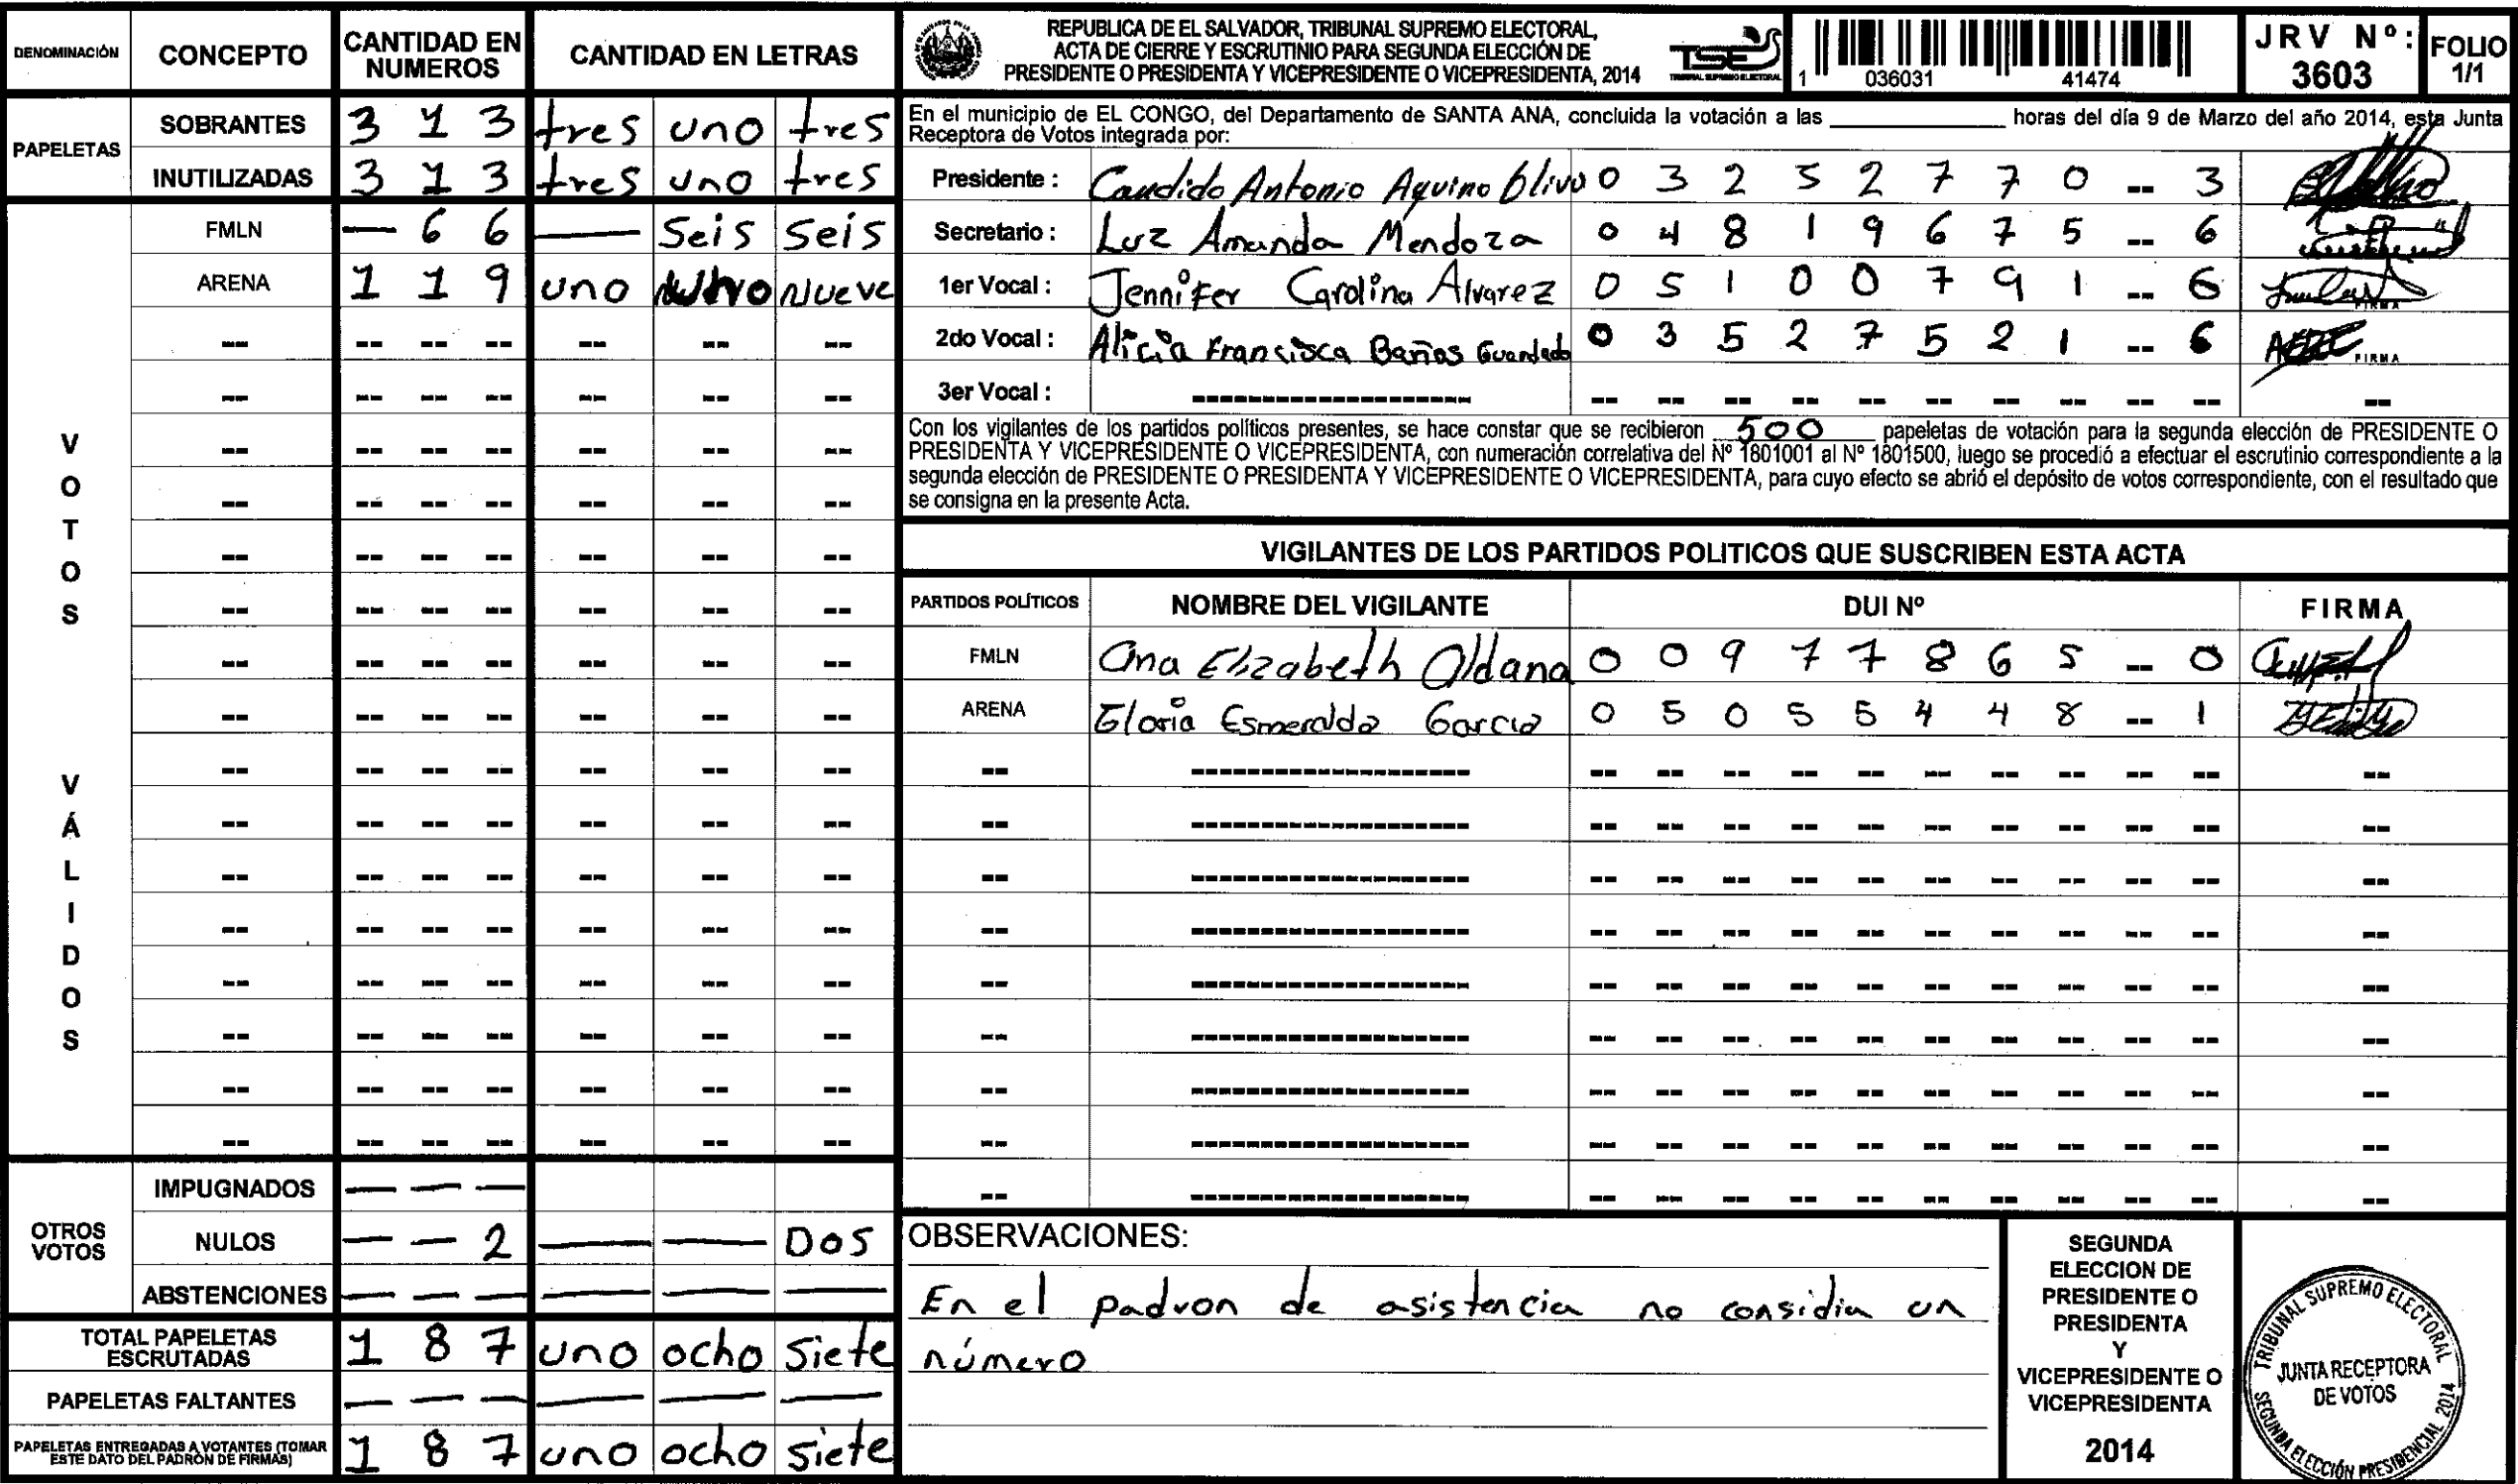 DENOMINACIÓN CONCEPTO CANTIDAD EN NUMEROS CANTIDAD EN LETRAS
PAPELETAS
SOBRANTES 3 1 3 tres uno tres
INUTILIZADAS 3 1 3 tres uno tres
VOTOS VÁLIDOS
FMLN — 6 6 — Seis Seis
ARENA 1 1 9 uno Nueve
OTROS VOTOS
IMPUGNADOS — — —
NULOS — — 2 — — DOS
ABSTENCIONES — — — — — —
TOTAL PAPELETAS ESCRUTADAS 1 8 7 uno ocho siete
PAPELETAS FALTANTES — — — — — —
PAPELETAS ENTREGADAS A VOTANTES (TOMAR ESTE DATO DEL PADRÓN DE FIRMAS) 1 8 7 uno ocho siete
REPUBLICA DE EL SALVADOR, TRIBUNAL SUPREMO ELECTORAL,
ACTA DE CIERRE Y ESCRUTINIO PARA SEGUNDA ELECCIÓN DE
PRESIDENTE O PRESIDENTA Y VICEPRESIDENTE O VICEPRESIDENTA, 2014
TSE
TRIBUNAL SUPREMO ELECTORAL
1 036031 41474
JRV Nº: 3603
FOLIO 1/1
En el municipio de EL CONGO, del Departamento de SANTA ANA, concluida la votación a las ____ horas del día 9 de Marzo del año 2014, esta Junta
Receptora de Votos integrada por:
Presidente : Candido Antonio Aquino Olivo 0 3 2 5 2 7 7 0 -- 3
Secretario : Luz Amanda Mendoza 0 4 8 1 9 6 7 5 -- 6
1er Vocal : Jennifer Carolina Alvarez 0 5 1 0 0 7 9 1 -- 6 FIRMA
2do Vocal : Alicia Francisca Barios Guardado 0 3 5 2 7 5 2 1 -- 6 FIRMA
3er Vocal :
Con los vigilantes de los partidos políticos presentes, se hace constar que se recibieron 500 papeletas de votación para la segunda elección de PRESIDENTE O
PRESIDENTA Y VICEPRESIDENTE O VICEPRESIDENTA, con numeración correlativa del Nº 1801001 al Nº 1801500, luego se procedió a efectuar el escrutinio correspondiente a la
segunda elección de PRESIDENTE O PRESIDENTA Y VICEPRESIDENTE O VICEPRESIDENTA, para cuyo efecto se abrió el depósito de votos correspondiente, con el resultado que
se consigna en la presente Acta.
VIGILANTES DE LOS PARTIDOS POLITICOS QUE SUSCRIBEN ESTA ACTA
PARTIDOS POLÍTICOS NOMBRE DEL VIGILANTE DUI Nº FIRMA
FMLN Ana Elizabeth Aldana 0 0 9 7 7 8 6 5 -- 0
ARENA Gloria Esmeralda Garcia 0 5 0 5 5 4 4 8 -- 1
OBSERVACIONES:
En el padron de asistencia no considia un
número
SEGUNDA
ELECCION DE
PRESIDENTE O
PRESIDENTA
Y
VICEPRESIDENTE O
VICEPRESIDENTA
2014
TRIBUNAL SUPREMO ELECTORAL
JUNTA RECEPTORA
DE VOTOS
SEGUNDA ELECCIÓN PRESIDENCIAL 2014